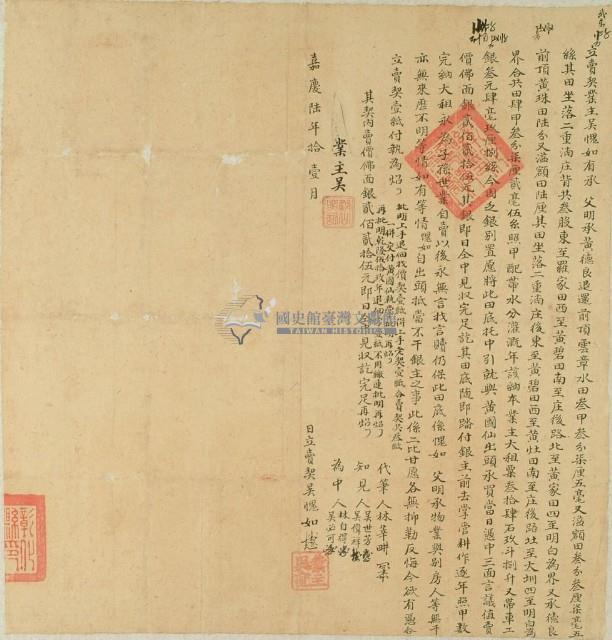 立賣契業主吳愧如有承 父明承黃德良退還前頂雲章水田叁甲叁分柒厘五毫又溢額田叁分叁厘柒毫五
絲其田坐落二重湳庄背共叁股東至羅家田西至黃碧田南至庄後路北至黃家田四至明白為界又承德良
前頂黃珠田陸分又溢額田陸厘其田坐落二重湳庄後東至黃碧田西至黃灶田南至庄後路北至大圳四至明白為
界合共田肆甲叁分柒厘貳毫伍系照甲配帶水分灌溉年該納本業主大租粟叁拾肆石玖斗捌升又帶車工
銀叁元肆毫玖厘捌絲今因乏銀別置愿將此田底托中引就與黃國仙出頭承買當日憑中三面言議值賣
價佛面銀貳佰貳拾伍元其銀即日全中見收完足訖其田底隨即踏付銀主前去掌管耕作逐年照甲數
完納大租永為子孫世業自賣以後永無言找言贖仍保此田底係愧如 父明承物業與別房人等無干
亦無來歷不明等情如有等情愧如自出頭抵當不干銀主之事此係二比甘愿各無抑勒反悔今欲有憑合
立賣契壹紙付執為炤
其契內賣價佛面銀貳佰貳拾伍元即日全中見收訖完足再炤
批明上手退佃找價契壹紙併上手老契壹紙合賣契共叁紙
一併交付黃國仙執憑批明再炤
代筆人林華
知見人吳世芳
吳偉祥
為中人林自得
吳必可
業主吳
嘉慶陸年拾壹月 日立賣契吳愧如
國史館臺灣文獻館
TAIWAN HISTORICA